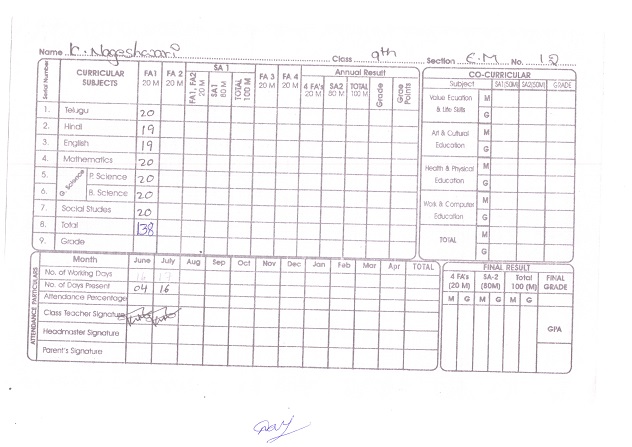 Name K. Nageshwari Class 9th Section E.M No. 12
Serial Number CURRICULAR SUBJECTS FA1 20 M FA 2 20 M SA 1 FA1, FA2 20 M SA1 80 M TOTAL 100 M FA 3 20 M FA 4 20 M Annual Result 4 FA's 20 M SA2 80 M TOTAL 100 M Grade Grade Points
1. Telugu 20
2. Hindi 19
3. English 19
4. Mathematics 20
5. G. Science P. Science 20
6. B. Science 20
7. Social Studies 20
8. Total 138
9. Grade
CO-CURRICULAR
Subject SA1(50M) SA2(50M) GRADE
Value Ecuation & Life Skills M G
Art & Cultural Education M G
Health & Physical Education M G
Work & Computer Education M G
TOTAL M G
ATTENDANCE PARTICULARS
Month June July Aug Sep Oct Nov Dec Jan Feb Mar Apr TOTAL
No. of Working Days
No. of Days Present 04 16
Attendance Percentage
Class Teacher Signature
Headmaster Signature
Parent's Signature
FINAL RESULT
4 FA's (20 M) SA-2 (80M) Total 100 (M) FINAL GRADE
M G M G M G
GPA